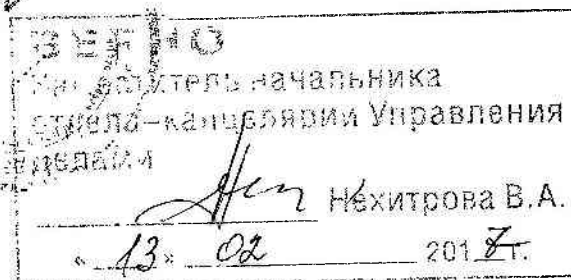 ВЕРНО
Заместитель начальника
отдела-канцелярии Управления
делами
Нехитрова В.А.
« 13 » 02 2017 г.